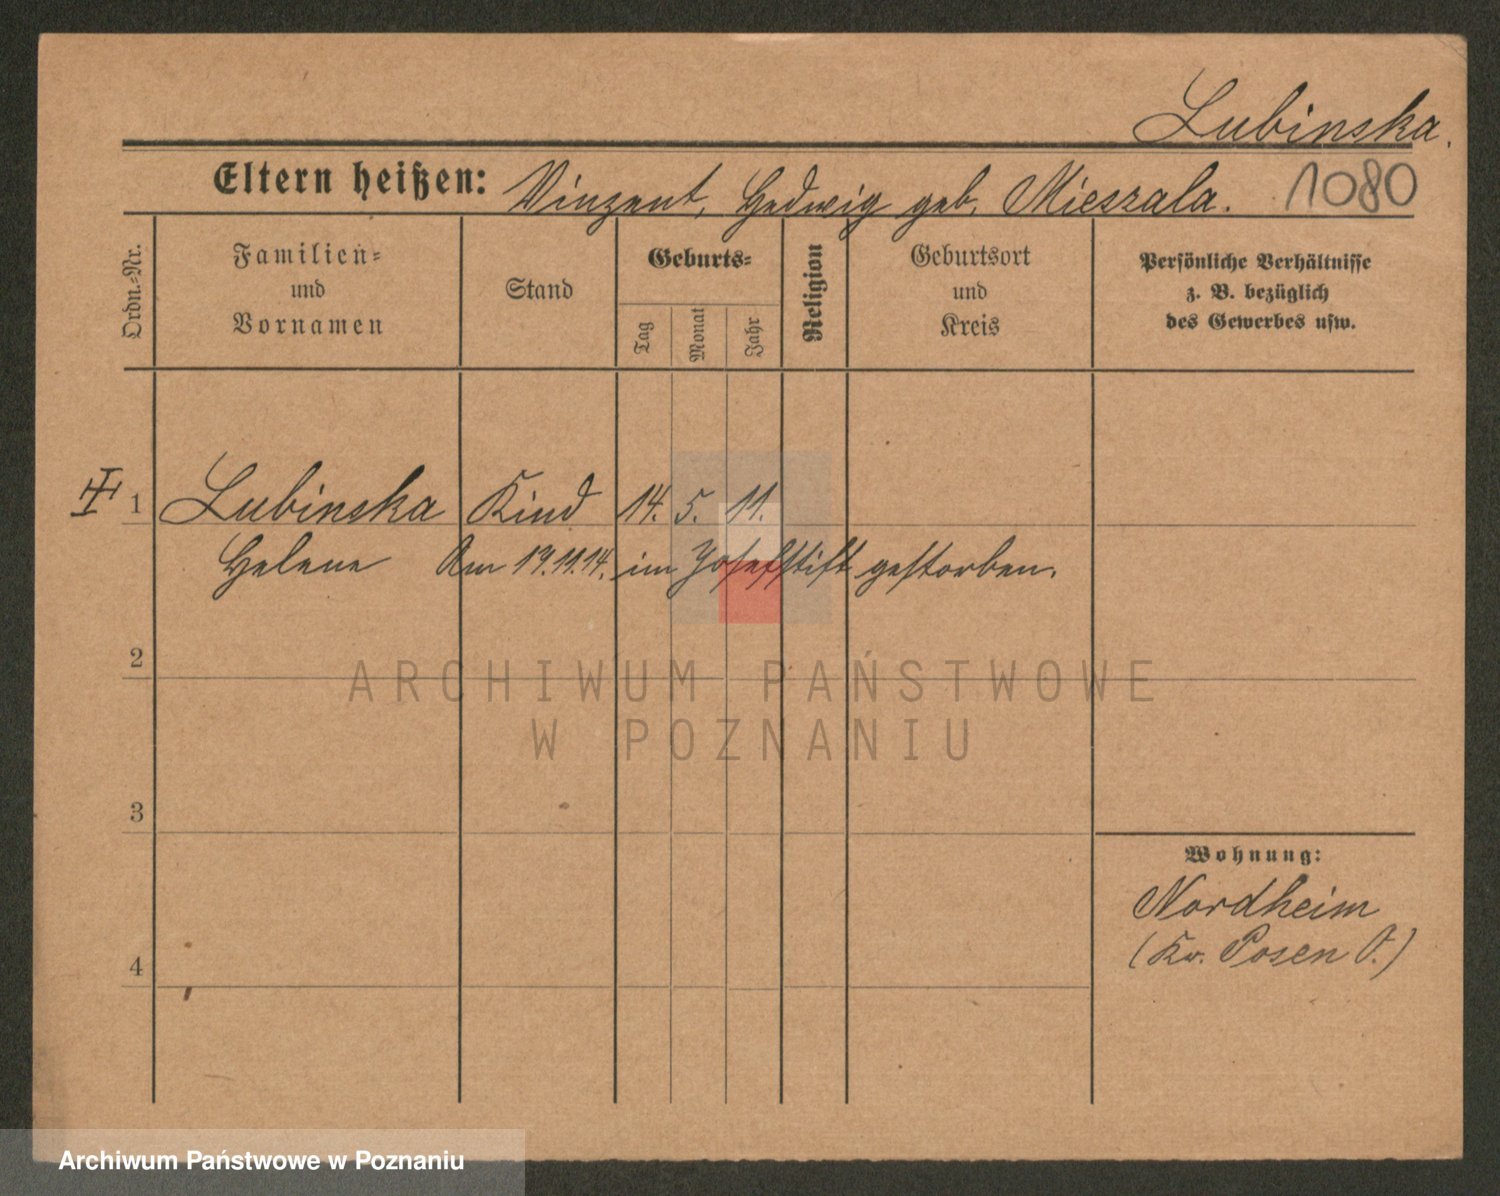 Lubinska.
Eltern heißen: Vinzent, Hedwig geb. Mieszala. 1080
Ordn.=Nr.
Familien=
und
Vornamen
Stand
Geburts=
Tag
Monat
Jahr
Religion
Geburtsort
und
Kreis
Persönliche Verhältnisse
z. B. bezüglich
des Gewerbes usw.
1 Lubinska Kind 14. 5. 11.
Helene Am 19.11.14. im Josefstift gestorben.
2
ARCHIWUM PAŃSTWOWE
W POZNANIU
3
Wohnung:
Nordheim
(Kr. Posen O.)
4
Archiwum Państwowe w Poznaniu